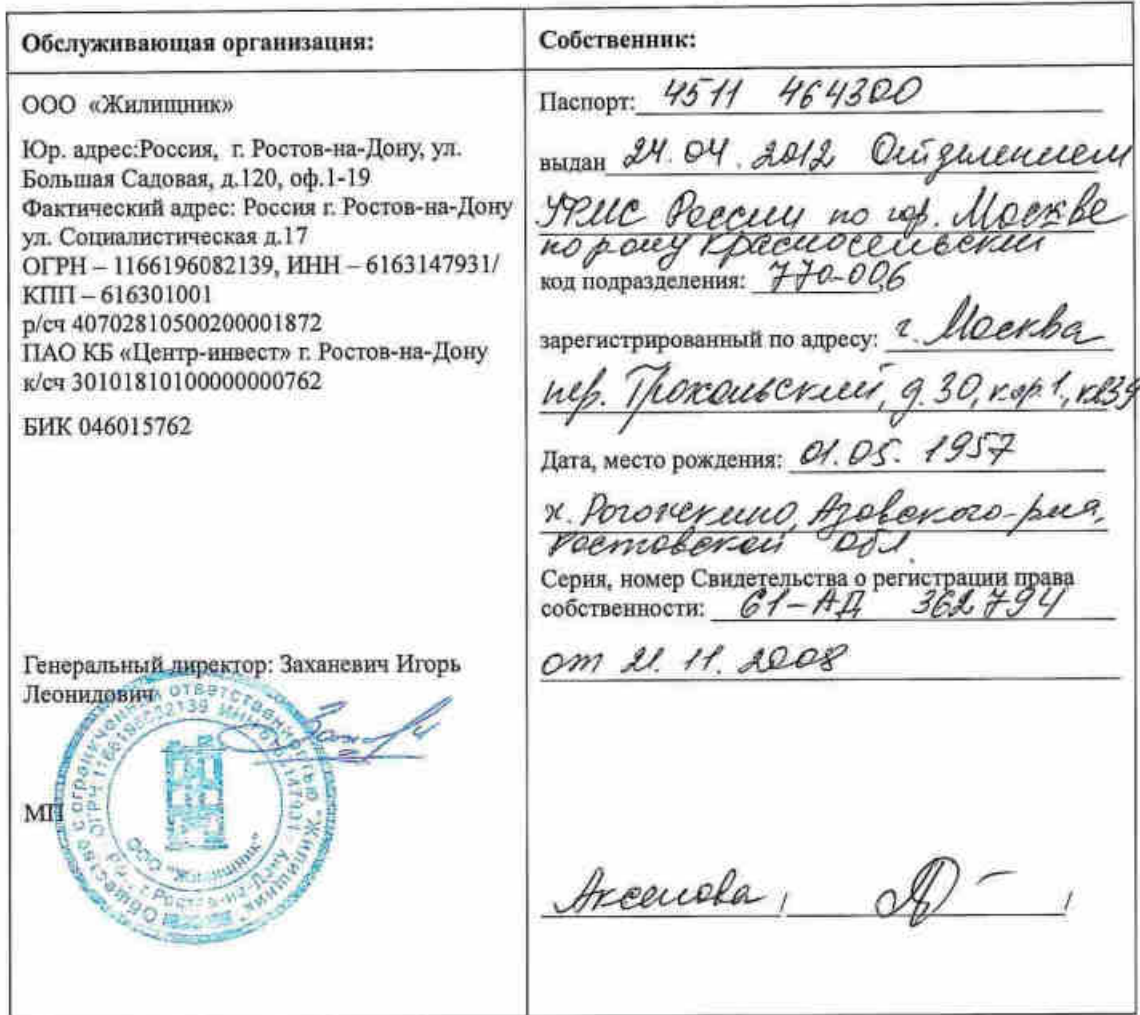 Обслуживающая организация:
ООО «Жилищник»
Юр. адрес:Россия, г. Ростов-на-Дону, ул.
Большая Садовая, д.120, оф.1-19
Фактический адрес: Россия г. Ростов-на-Дону
ул. Социалистическая д.17
ОГРН – 1166196082139, ИНН – 6163147931/
КПП – 616301001
р/сч 40702810500200001872
ПАО КБ «Центр-инвест» г. Ростов-на-Дону
к/сч 30101810100000000762
БИК 046015762
Генеральный директор: Заханевич Игорь
Леонидович
МП
Общество с ограниченной ответственностью "Жилищник"
ОГРН 1166196082139 ИНН 6163147931
г. Ростов-на-Дону
ООО "Жилищник"
Собственник:
Паспорт: 4511 464300
выдан 24.04.2012 Отделением
УФМС России по гор. Москве
по р-ну Красносельский
код подразделения: 770-006
зарегистрированный по адресу: г. Москва
пер. д. 30, кор. 1, кв39
Дата, место рождения: 01.05.1957
х. Рогожкино, Азовского р-на,
Ростовской обл.
Серия, номер Свидетельства о регистрации права
собственности: 61-АД 362794
от 21.11.2008
Аксенова / /